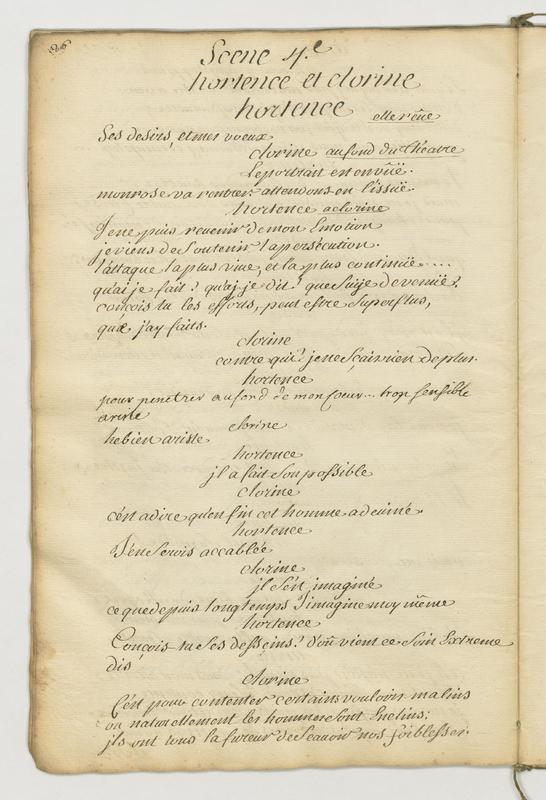 Scene 4.e
hortence et clorine
hortence elle rêue
Ses desirs, et mes voeux
clorine au fond du theatre
le portrait en envüe.
monrose va rentrer: attendons en l'issüe.
hortence a clorine
Je ne puis reuenir de mon Emotion
je viens de Soutenir la persécution.
l'attaque la plus viue, et la plus continüe....
qu'ai je fait? qu'ai je dit? que Suije devenüe?
conçois tu les efforts, peut estre Superflus,
que j'ay faits.
clorine
contre qui? je ne Sçais rien de plus.
hortence
pour penetrer au fond de mon Coeur... trop Sensible
ariste
clorine
hebien ariste
hortence
jl a fait Son possible
clorine
c'est a dire qu'enfin cet homme a deuiné.
hortence
J'en Serois accablée
clorine
jl s'est imaginé
ce que depuis longtemps J'imagine moy même
hortence
Conçois tu Ses desseins? d'où vient ce Soin Extreme
dis
clorine
C'est pour contenter certains vouloirs malins
ou naturellement les hommes Sont Enclins;
jls ont tous la fureur de Scauoir nos foiblesses.